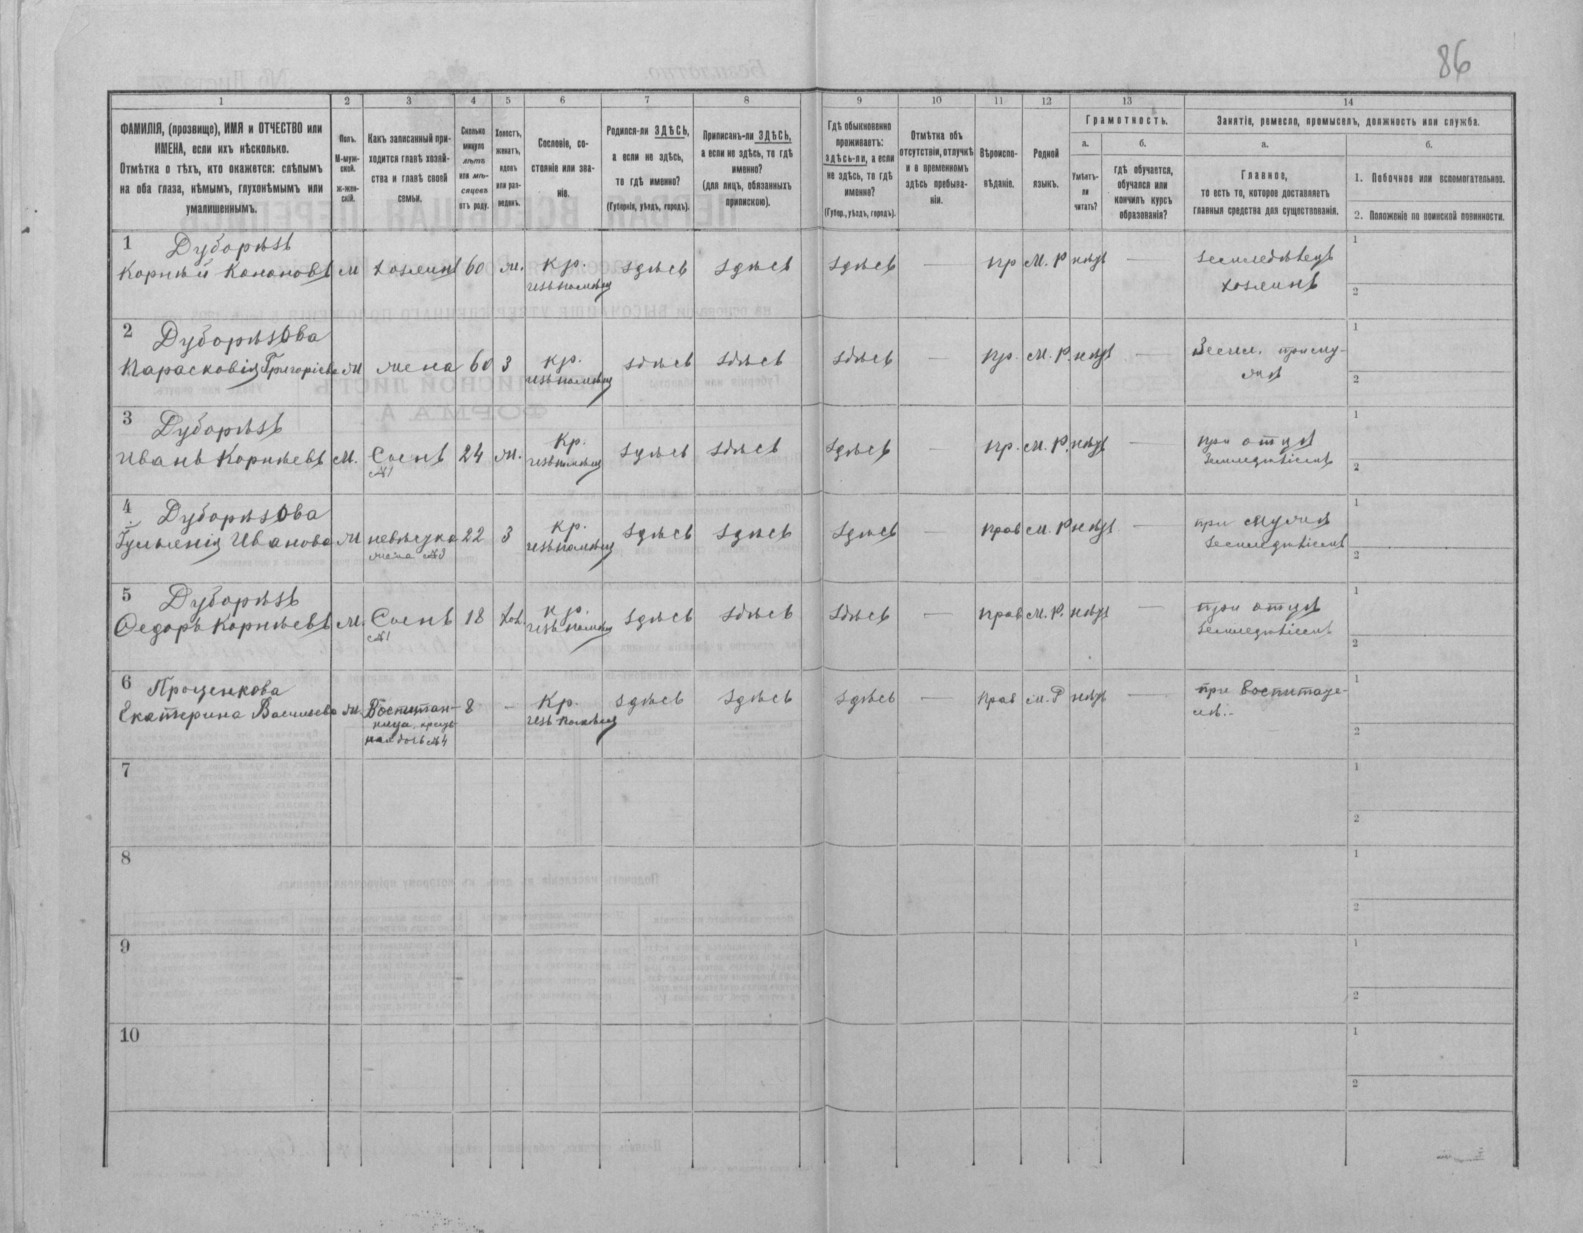 86
1 2 3 4 5 6 7 8 9 10 11 12 13 14
ФАМИЛІЯ, (прозвище), ИМЯ и ОТЧЕСТВО или
ИМЕНА, если ихъ нѣсколько.
Отмѣтка о тѣхъ, кто окажется: слѣпымъ
на оба глаза, нѣмымъ, глухонѣмымъ или
умалишеннымъ.
Полъ.
М-муж-
ской.
ж-жен-
скій.
Какъ записанный при-
ходится главѣ хозяй-
ства и главѣ своей
семьи.
Сколько
минуло
лѣтъ
или мѣ-
сяцевъ
отъ роду.
Холостъ,
женатъ,
вдовъ
или раз-
веденъ.
Сословіе, со-
стояніе или зва-
ніе.
Родился-ли ЗДѢСЬ,
а если не здѣсь,
то гдѣ именно?
(Губернія, уѣздъ, городъ).
Приписанъ-ли ЗДѢСЬ,
а если не здѣсь, то гдѣ
именно?
(для лицъ, обязанныхъ
припискою).
Гдѣ обыкновенно
проживаетъ:
здѣсь-ли, а если
не здѣсь, то гдѣ
именно?
(Губер., уѣздъ, городъ).
Отмѣтка объ
отсутствіи, отлучкѣ
и о временномъ
здѣсь пребыва-
ніи.
Вѣроиспо-
вѣданіе.
Родной
языкъ.
Грамотность.
а.
Умѣетъ-
ли
читать?
б.
гдѣ обучается,
обучался или
кончилъ курсъ
образованія?
Занятіе, ремесло, промыселъ, должность или служба.
а.
Главное,
то есть то, которое доставляетъ
главныя средства для существованія.
б.
1. Побочное или вспомогательное.
2. Положеніе по воинской повинности.
1 Дуборѣзъ
Корнѣй Канановъ м хозяинъ 60 ж. кр. здѣсь здѣсь здѣсь — пр М. Р. нѣтъ — земледѣлецъ 1
изъ помѣщ хозяинъ 2
2 Дуборѣзова
Парасковія Григоріева ж жена 60 з кр. здѣсь здѣсь здѣсь — пр. М. Р. нѣтъ — Земл. при му- 1
изъ помѣщ жѣ 2
3 Дуборѣзъ
Иванъ Корнѣевъ м. Сынъ 24 ж. Кр. здѣсь здѣсь здѣсь — пр. М. Р. нѣтъ — при отцѣ 1
№1 изъ помѣщ 2
4 Дуборѣзова
Иванова ж невѣстка 22 з кр. здѣсь здѣсь здѣсь — прав М. Р нѣтъ — при мужѣ 1
жена №3 изъ помѣщ 2
5 Дуборѣзъ
Федоръ Корнѣевъ м. Сынъ 18 хол. кр. здѣсь здѣсь здѣсь — прав М. Р. нѣтъ — при отцѣ 1
№1 изъ помѣщ 2
6 Проценкова
Екатерина Васильева ж. Воспитан- 8 – Кр. здѣсь здѣсь здѣсь — прав М. Р нѣтъ — при воспитате- 1
ница изъ помѣщ лѣ. 2
№4
7 1
2
8 1
2
9 1
2
10 1
2